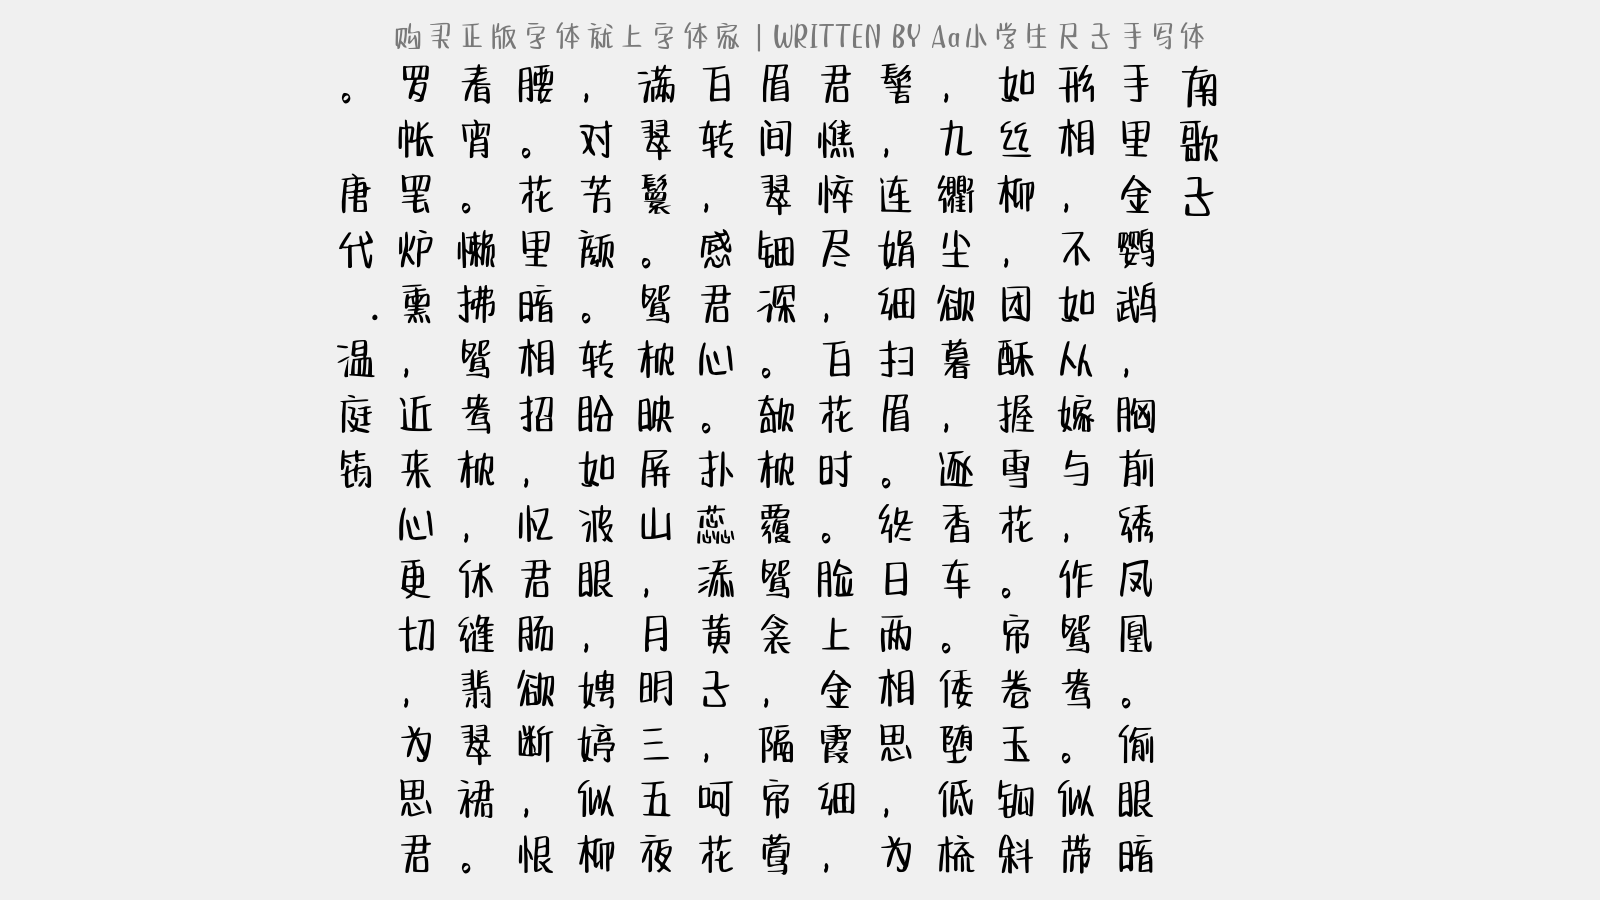 购买正版字体就上字体家 | WRITTEN BY Aa小学生尺子手写体
南歌子
手里金鹦鹉，胸前绣凤凰。偷眼暗
形相，不如从嫁与，作鸳鸯。似带
如丝柳，团酥握雪花。帘卷玉钩斜
，九衢尘欲暮，逐香车。倭堕低梳
髻，连娟细扫眉。终日两相思，为
君憔悴尽，百花时。脸上金霞细，
眉间翠钿深。欹枕覆鸳衾。隔帘莺
百转，感君心。扑蕊添黄子，呵花
满翠鬟。鸳枕映屏山。月明三五夜
，对芳颜。转盼如波眼，娉婷似柳
腰。花里暗相招，忆君肠欲断，恨
春宵。懒拂鸳鸯枕，休缝翡翠裙。
罗帐罢炉熏，近来心更切，为思君
。唐代.温庭筠